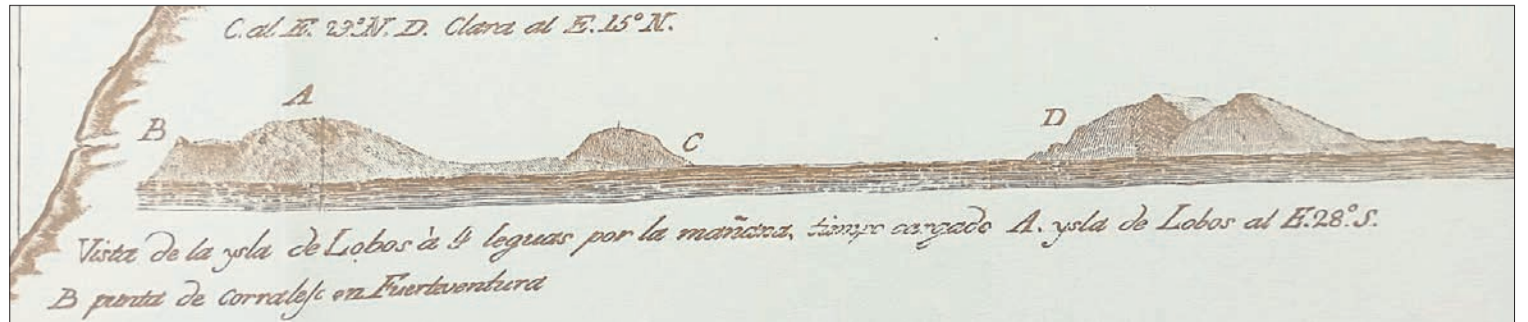 C. al E. 29º N. D. Clara al E. 15º N.
A
B
C
D
Vista de la ysla de Lobos à 4 leguas por la mañana, tiempo cargado A. ysla de Lobos al E. 28º S.
B punta de Corralesc en Fuerteventura